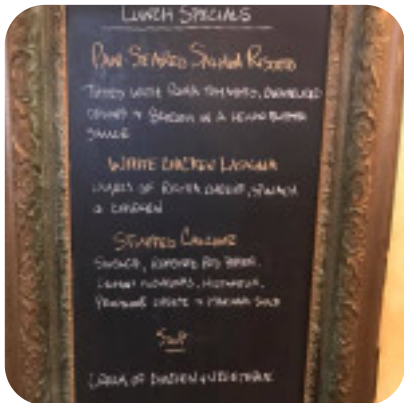 Lunch Specials
Pan Seared Salmon Risotto
Tossed with Roma Tomatoes, Caramelized
Onions & Bacon in a Lemon Butter
Sauce
White Chicken Lasagna
Layers of Ricotta Cheese, Spinach
& Chicken
Stuffed Calzone
Sausage, Roasted Red Pepper,
Mushrooms,
Cheese & Marinara Sauce
Soup
Cream of Chicken & Vegetable